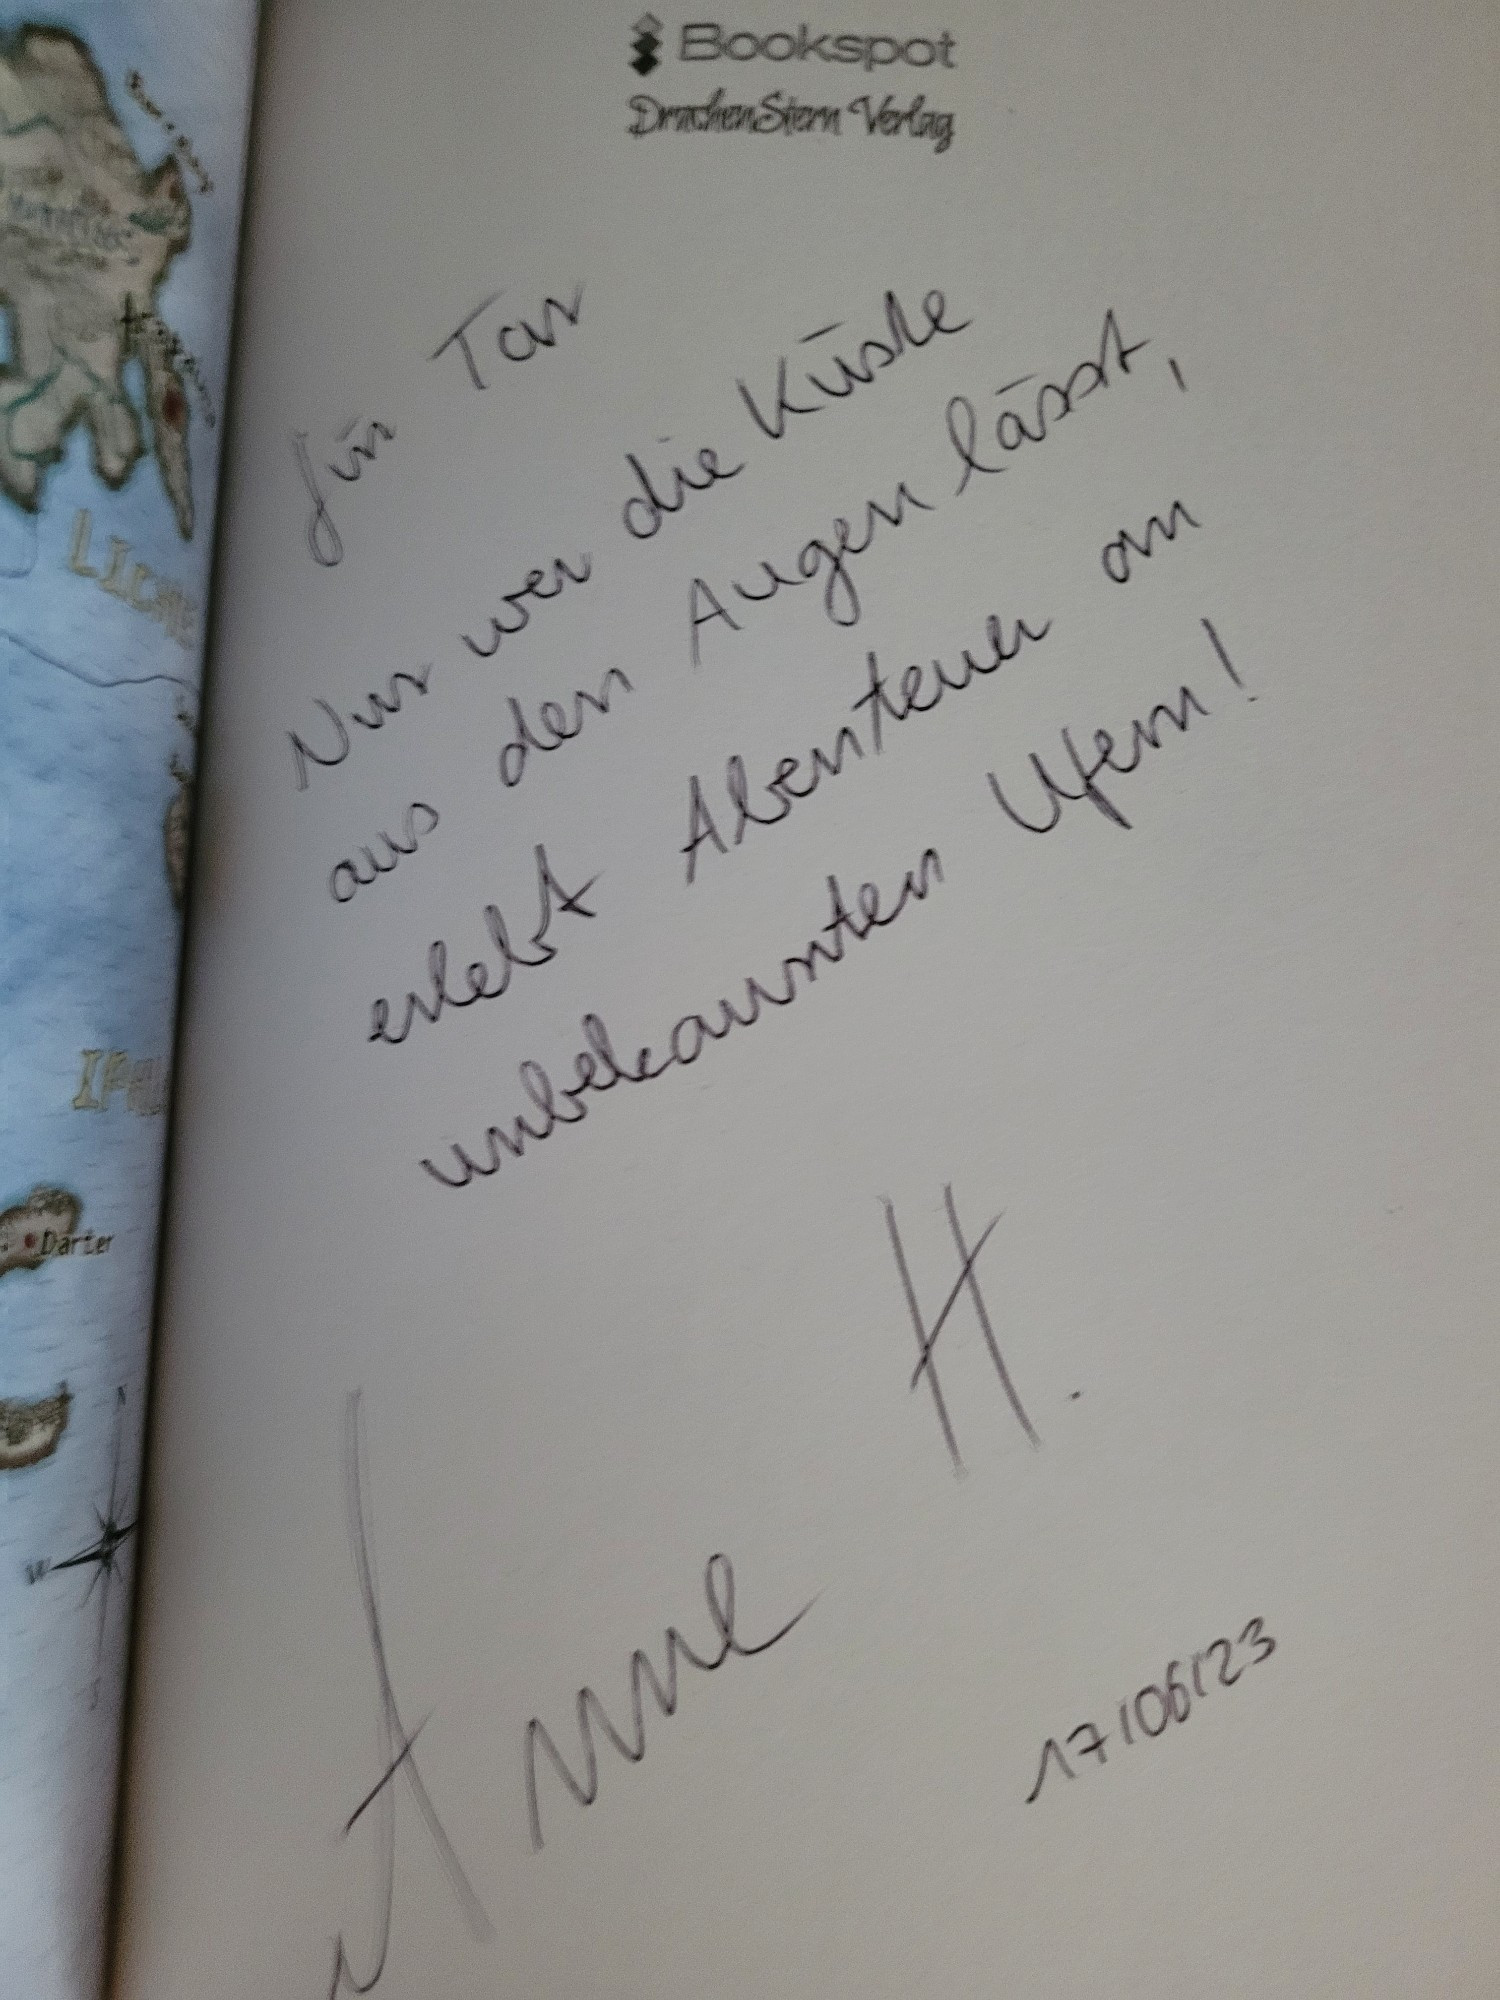 Bookspot
DrachenStern Verlag
für Tar
Nur wer die Küste
aus den Augen lässt,
erlebt Abenteuer an
unbekannten Ufern!
Anne H.
17/06/23
Darter
N
W
S